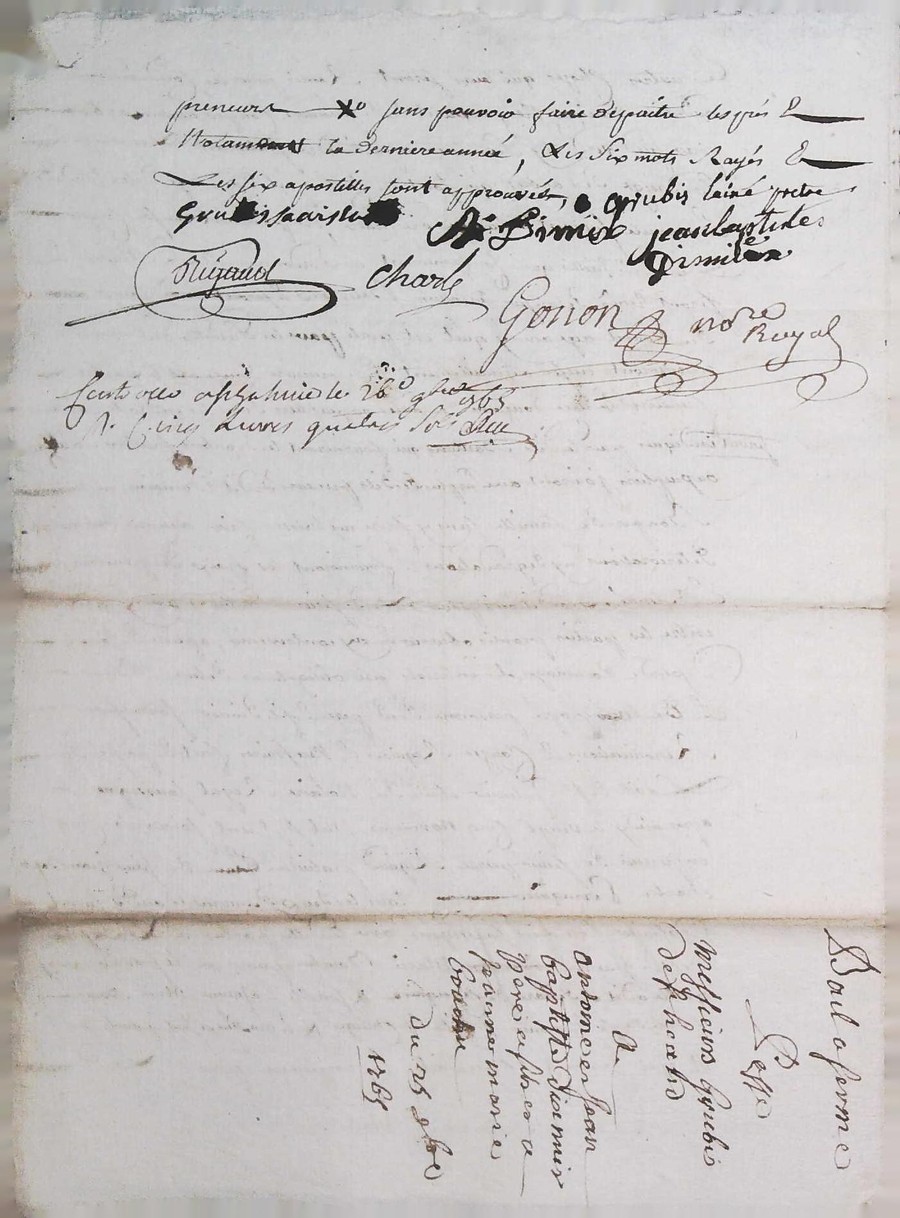 preneurs Xo sans pouvoir faire depaitre les prés &
Notamment la derniere année, Les Six mots Rayés &
Les six apostilles sont approuvés, grubis lainé pretre
A. Dimier jean baptiste
Dimier
Rigaud Charle
Gonon nore
Royal
le 28e 9bre 1765
R. Cinq Livres quatre sols
Bail a ferme
Passé
Messieurs Grubis
de
A
Antoine et Jean
baptiste Dimier
Pere et fils et a
jeanne marie
Du 25 9bre
1765